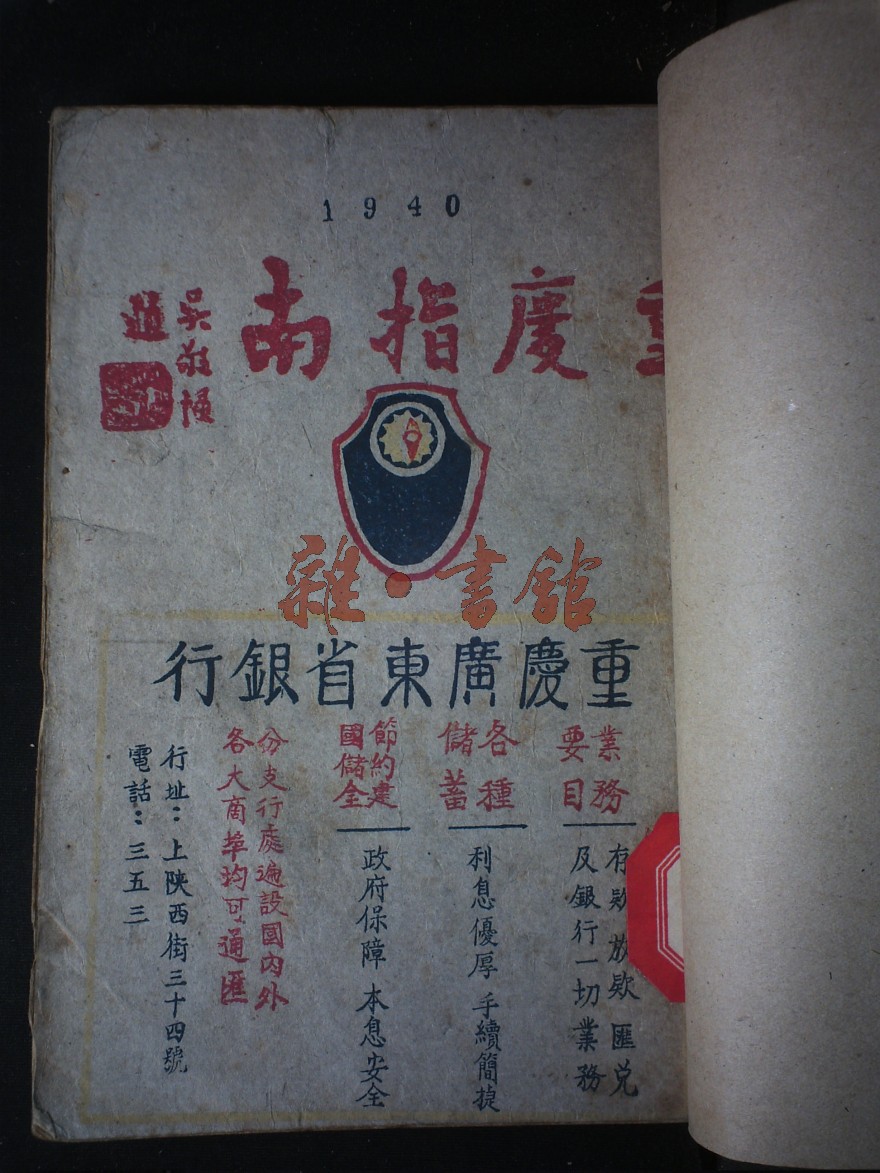 1940
重慶指南
吳敬恆
題
雜·書館
重慶廣東省銀行
業務
要目
存款 放款 匯兌
及銀行一切業務
各種
儲蓄
利息優厚 手續簡捷
節約建
國儲金
政府保障 本息安全
分支行處遍設國內外
各大商埠均可通匯
行址：上陝西街三十四號
電話：三五三